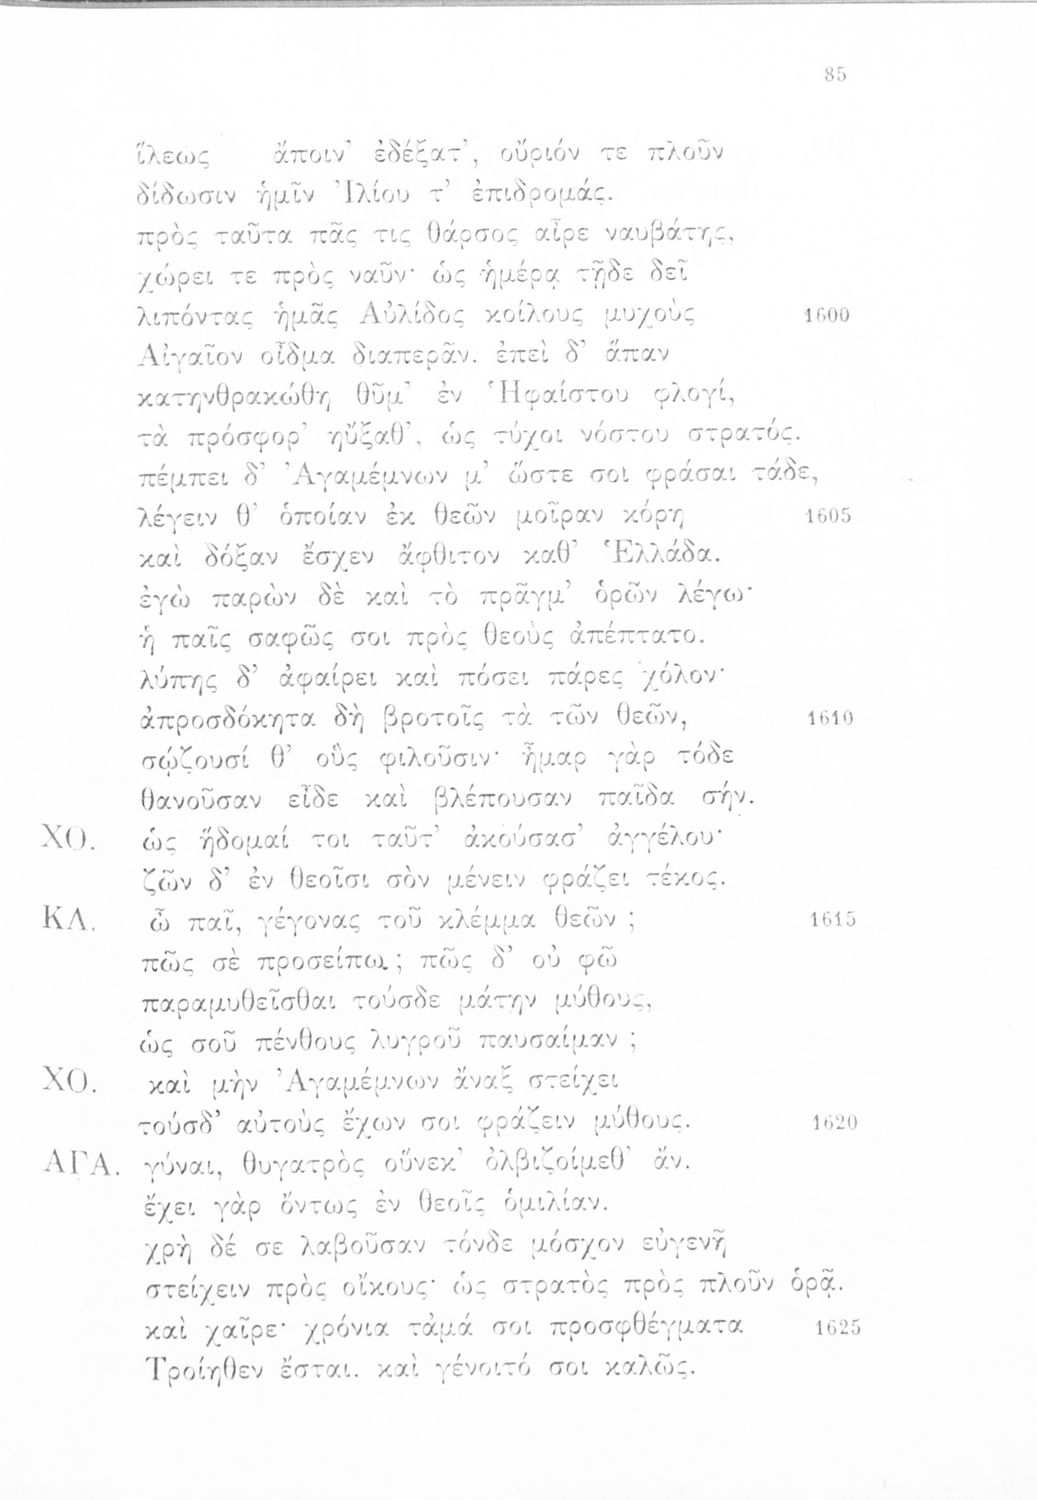 85
ἵλεως ἄποιν’ ἐδέξατ’, οὔριόν τε πλοῦν
δίδωσιν ἡμῖν Ἰλίου τ’ ἐπιδρομάς.
πρὸς ταῦτα πᾶς τις θάρσος αἶρε ναυβάτης,
χώρει τε πρὸς ναῦν· ὡς ἡμέρᾳ τῇδε δεῖ
λιπόντας ἡμᾶς Αὐλίδος κοίλους μυχοὺς 1600
Αἰγαῖον οἶδμα διαπερᾶν. ἐπεὶ δ’ ἅπαν
κατηνθρακώθη θῦμ’ ἐν Ἡφαίστου φλογί,
τὰ πρόσφορ’ ηὔξαθ’, ὡς τύχοι νόστου στρατός.
πέμπει δ’ Ἀγαμέμνων μ’ ὥστε σοι φράσαι τάδε,
λέγειν θ’ ὁποίαν ἐκ θεῶν μοῖραν κόρη 1605
καὶ δόξαν ἔσχεν ἄφθιτον καθ’ Ἑλλάδα.
ἐγὼ παρὼν δὲ καὶ τὸ πρᾶγμ’ ὁρῶν λέγω·
ἡ παῖς σαφῶς σοι πρὸς θεοὺς ἀπέπτατο.
λύπης δ’ ἀφαίρει καὶ πόσει πάρες χόλον·
ἀπροσδόκητα δὴ βροτοῖς τὰ τῶν θεῶν, 1610
σῴζουσί θ’ οὓς φιλοῦσιν· ἦμαρ γὰρ τόδε
θανοῦσαν εἶδε καὶ βλέπουσαν παῖδα σήν.
ΧΟ. ὡς ἥδομαί τοι ταῦτ’ ἀκούσασ’ ἀγγέλου·
ζῶν δ’ ἐν θεοῖσι σὸν μένειν φράζει τέκος.
ΚΛ. ὦ παῖ, γέγονας τοῦ κλέμμα θεῶν ; 1615
πῶς σὲ προσείπω ; πῶς δ’ οὐ φῶ
παραμυθεῖσθαι τούσδε μάτην μύθους,
ὡς σοῦ πένθους λυγροῦ παυσαίμαν ;
ΧΟ. καὶ μὴν Ἀγαμέμνων ἄναξ στείχει
τούσδ’ αὐτοὺς ἔχων σοι φράζειν μύθους. 1620
ΑΓΑ. γύναι, θυγατρὸς οὕνεκ’ ὀλβιζοίμεθ’ ἄν.
ἔχει γὰρ ὄντως ἐν θεοῖς ὁμιλίαν.
χρὴ δέ σε λαβοῦσαν τόνδε μόσχον εὐγενῆ
στείχειν πρὸς οἴκους· ὡς στρατὸς πρὸς πλοῦν ὁρᾷ.
καὶ χαῖρε· χρόνια τἀμά σοι προσφθέγματα 1625
Τροίηθεν ἔσται. καὶ γένοιτό σοι καλῶς.